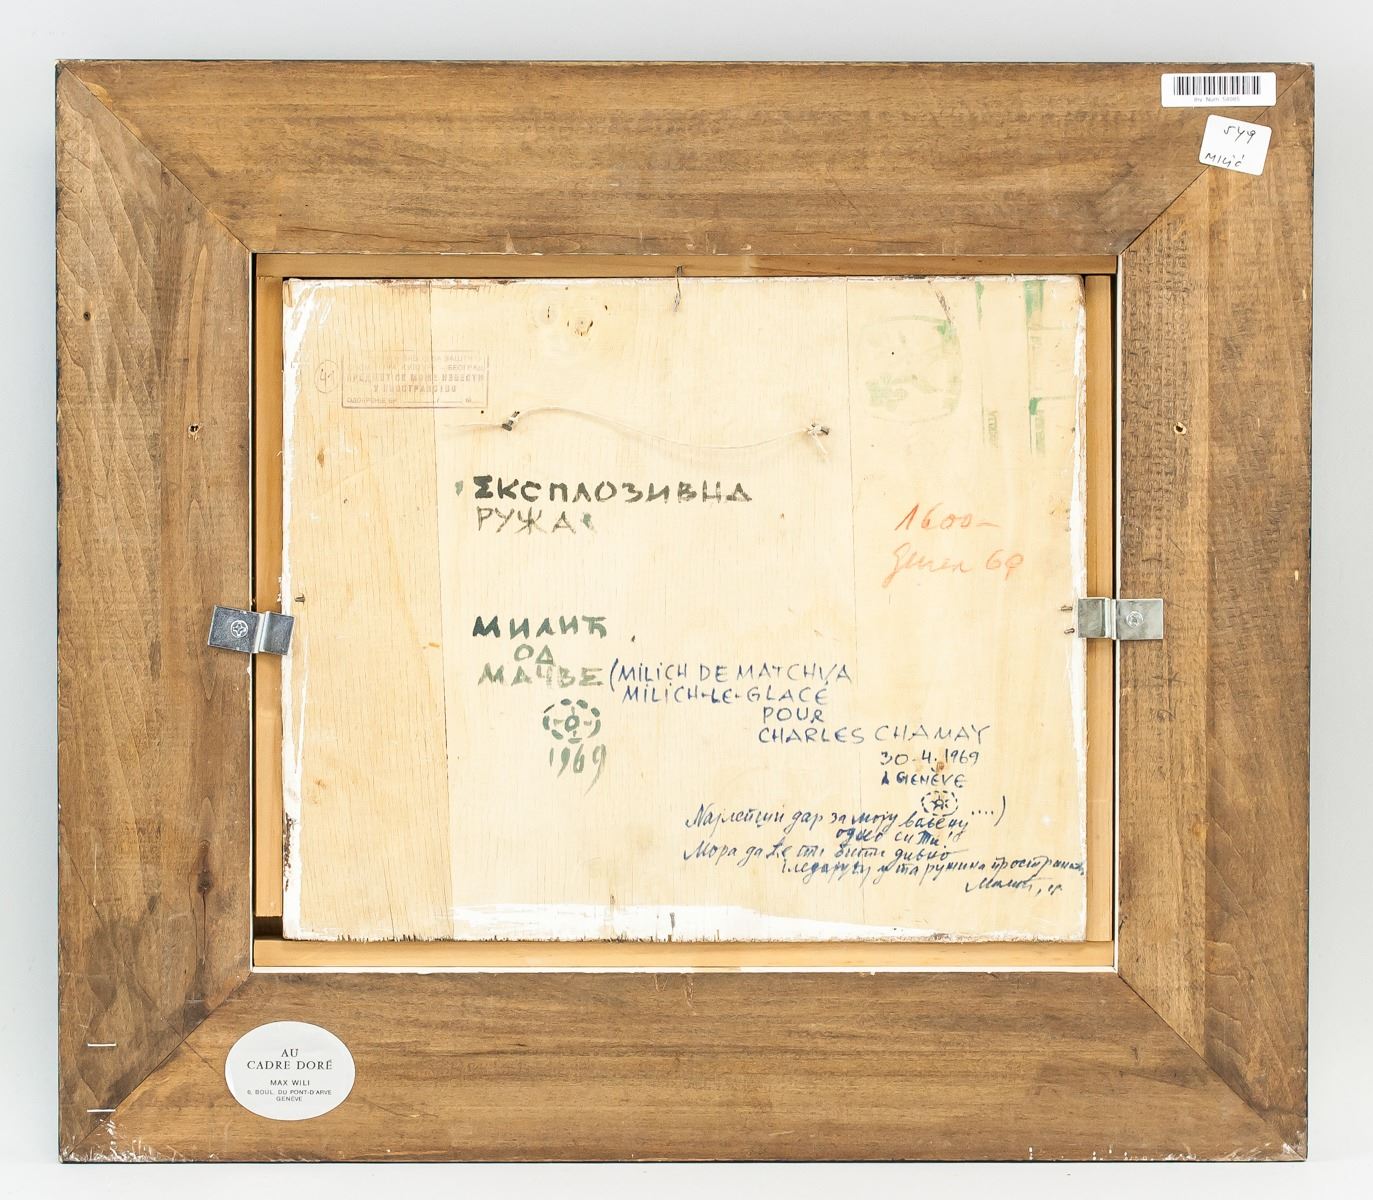 Inv. Num. 58085
549
MILIĆ
41
ЗАШТИТУ
БЕОГРАД
ПРЕДМЕТ СЕ МОЖЕ ИЗВЕСТИ
У ИНОСТРАНСТВО
ОДОБРЕЊЕ БР.
ЕКСПЛОЗИВНА
РУЖА
1600-
69
МИЛИЋ
ОД
МАЧВЕ (MILICH DE MATCHVA
MILICH-LE-GLACE
POUR
CHARLES CHAMAY
30-4.1969
A GENÈVE
1969
....)
Најлепши дар за моју васену
одјео си ти!
Мора да ће ти бити дивно
у та ружина
AU
CADRE DORÉ
MAX WILI
6, BOUL. DU PONT-D'ARVE
GENÈVE